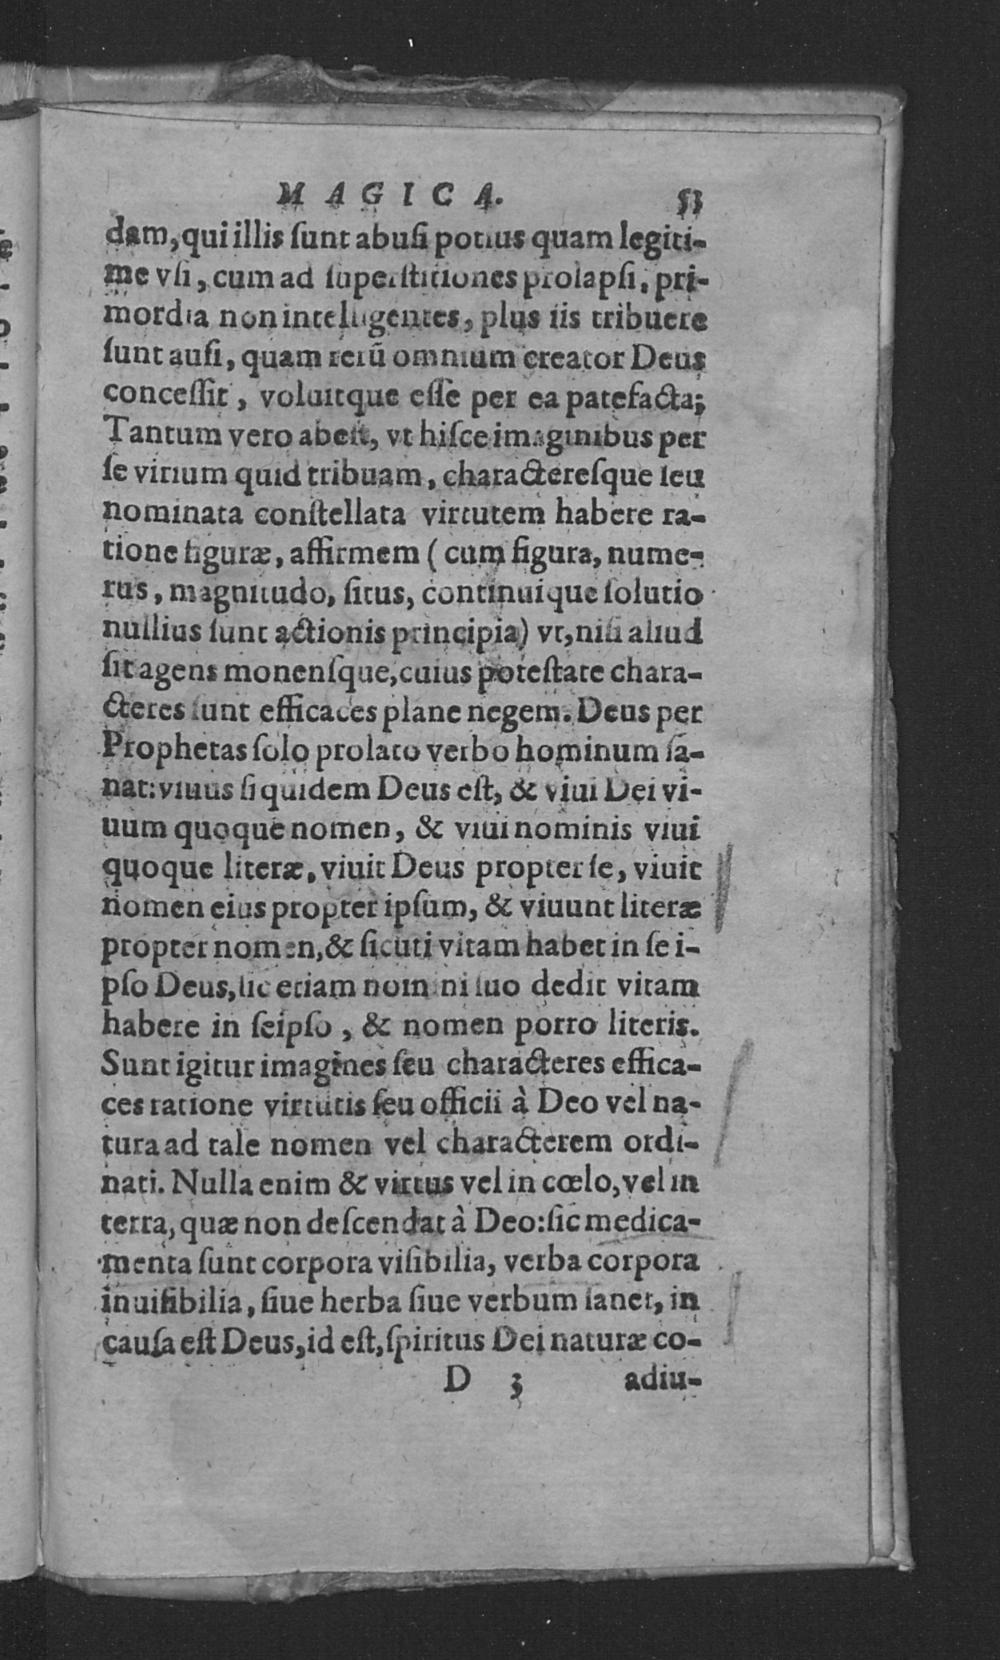 MAGICA. 53
dam, qui illis ſunt abuſi potius quam legiti-
me vſi, cum ad ſuperſtitiones prolapſi, pri-
mordia non intelligentes, plus iis tribuere
ſunt auſi, quam rerū omnium creator Deus
conceſſit, voluitque eſſe per ea patefacta;
Tantum vero abeſt, vt hiſce imaginibus per
ſe virium quid tribuam, characteresſque ſeu
nominata conſtellata virtutem habere ra-
tione figuræ, affirmem (cum figura, nume-
rus, magnitudo, ſitus, continuique ſolutio
nullius ſunt actionis principia) vt, niſi aliud
ſit agens monenſque, cuius poteſtate chara-
cteres ſunt efficaces plane negem. Deus per
Prophetas ſolo prolato verbo hominum ſa-
nat: viuus ſiquidem Deus eſt, & viui Dei vi-
uum quoque nomen, & viui nominis viui
quoque literæ, viuit Deus propter ſe, viuit
nomen eius propter ipſum, & viuunt literæ
propter nomen, & ſicuti vitam habet in ſe i-
pſo Deus, ſic etiam nomini ſuo dedit vitam
habere in ſeipſo, & nomen porro literis.
Sunt igitur imagines ſeu characteres effica-
ces ratione virtutis ſeu officii à Deo vel na-
tura ad tale nomen vel characterem ordi-
nati. Nulla enim & virtus vel in cœlo, vel in
terra, quæ non deſcendat à Deo: ſic medica-
menta ſunt corpora viſibilia, verba corpora
inuiſibilia, ſiue herba ſiue verbum ſanet, in
cauſa eſt Deus, id eſt, ſpiritus Dei naturæ co-
D 3 adiu-